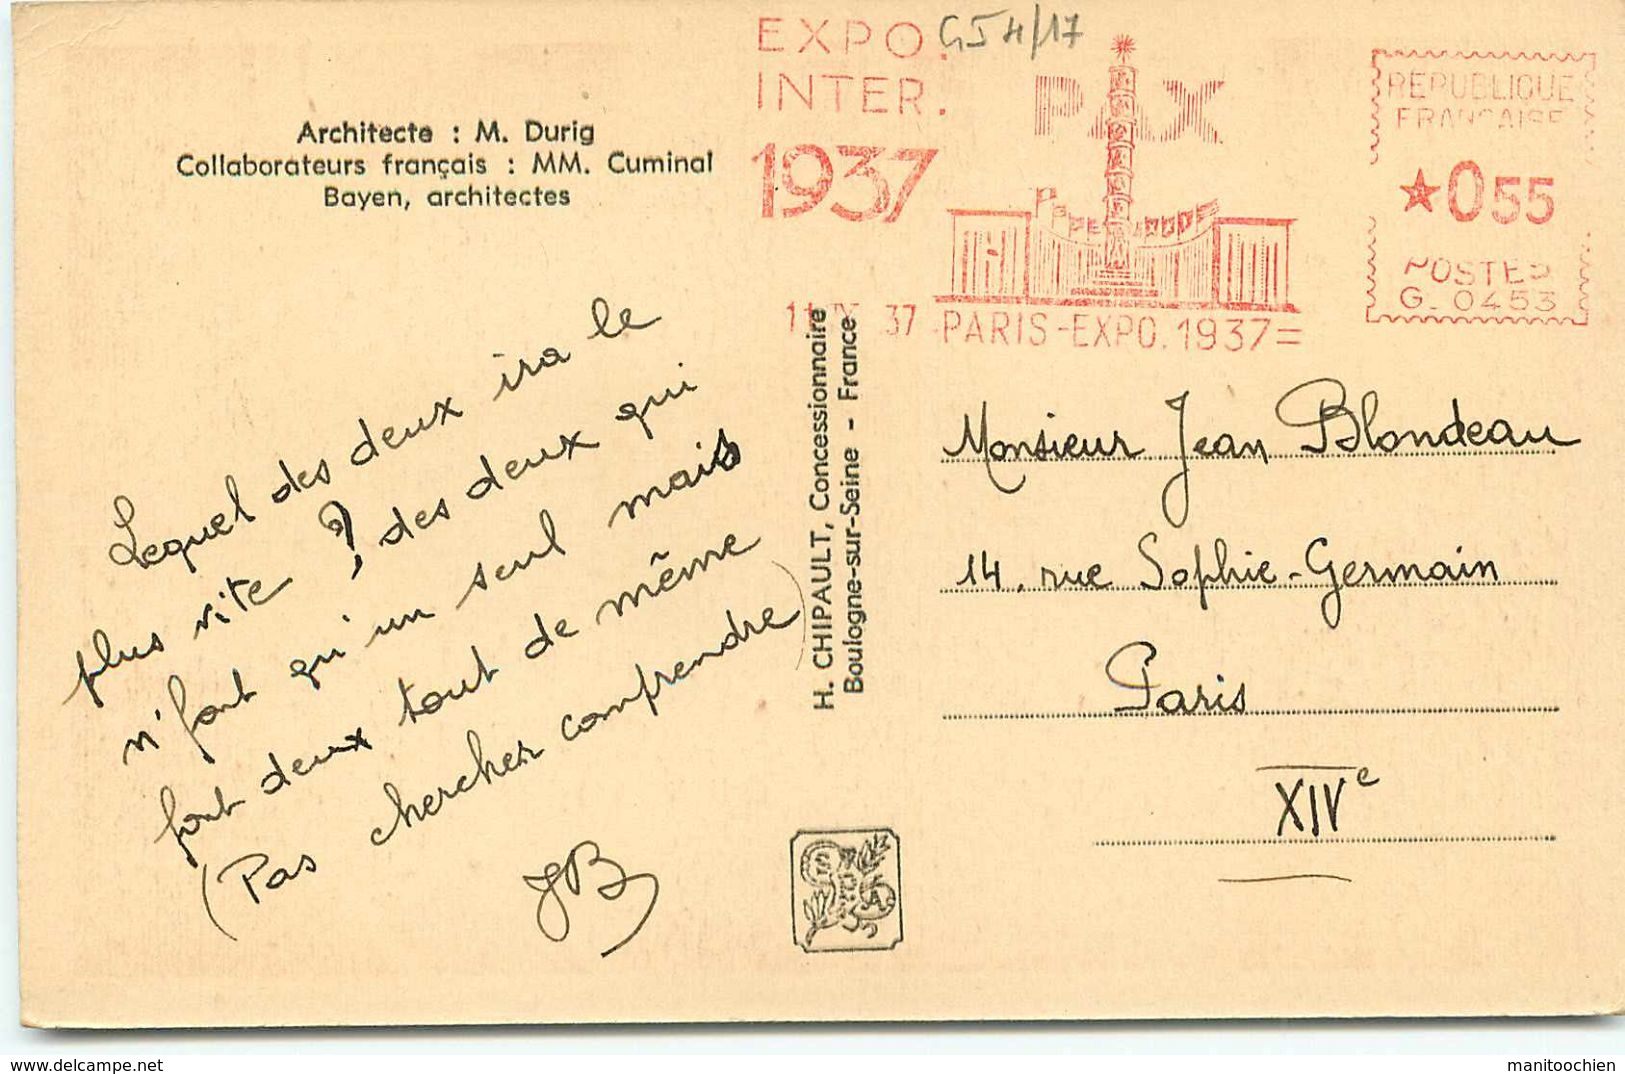 G54/17
EXPO.
INTER.
1937
PAX
REPUBLIQUE
FRANCAISE
★055
POSTES
G_0453
11 37
PARIS-EXPO.1937=
Architecte : M. Durig
Collaborateurs français : MM. Cuminal
Bayen, architectes
Lequel des deux ira le
plus vite ? des deux qui
n'font qu'un seul mais
font deux tout de même
(Pas chercher comprendre)
JB
H. CHIPAULT, Concessionnaire
Boulogne-sur-Seine - France
Monsieur Jean Blondeau
14, rue Sophie-Germain
Paris
XIVe
manitoochien